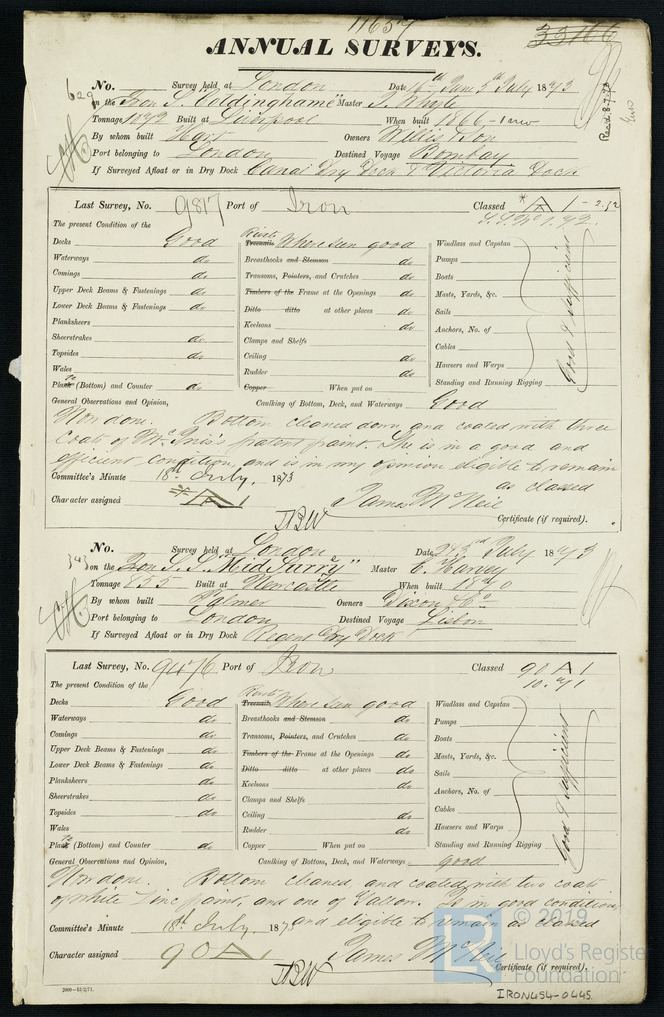 11657
33166
ANNUAL SURVEYS.
No. 629 Survey held at London Date 16th June 5th July 1873
on the Iron S. "Coldinghame" Master J. Whyte
Tonnage 1892 Built at Liverpool When built 1866 -
By whom built Hart Owners Willis & Son
Port belonging to London Destined Voyage Bombay
If Surveyed Afloat or in Dry Dock Canal Dry Dock & Victoria Dock
Recd. 8.7.73
Last Survey, No. 9817 Port of Iron Classed A 1 - 2.72
The present Condition of the
Decks Good Rivets Treenails Where seen good Windlass and Capstan
Waterways do Breasthooks and Stemson do Pumps
Comings do Transoms, Pointers, and Crutches do Boats
Upper Deck Beams & Fastenings do Timbers of the Frame at the Openings do Masts, Yards, &c.
Lower Deck Beams & Fastenings do Ditto ditto at other places do Sails
Planksheers Keelsons do Anchors, No. of
Sheerstrakes do Clamps and Shelfs Cables
Topsides do Ceiling do Hawsers and Warps
Wales Rudder do Standing and Running Rigging
Plank (Bottom) and Counter do Copper When put on
Good & sufficient
General Observations and Opinion, Caulking of Bottom, Deck, and Waterways Good
Now done. Bottom cleaned down and coated with three
Coats of patent paint. She is in a good and
efficient condition, and is in my opinion eligible to remain
as classed
Committee's Minute 18th July, 1873
Character assigned A 1 James McNeil
Certificate (if required).
No. 343 Survey held at London Date July 1873
on the Iron S.S. "Mid Surrey" Master C. Harvey
Tonnage 855 Built at Newcastle When built
By whom built Palmer Owners Dixon & Co
Port belonging to London Destined Voyage Lisbon
If Surveyed Afloat or in Dry Dock Regent Dry Dock
Last Survey, No. 9476 Port of Iron Classed 90 A 1
The present Condition of the
Decks Good Rivets Treenails Where seen good Windlass and Capstan
Waterways do Breasthooks and Stemson do Pumps
Comings do Transoms, Pointers, and Crutches do Boats
Upper Deck Beams & Fastenings do Timbers of the Frame at the Openings do Masts, Yards, &c.
Lower Deck Beams & Fastenings do Ditto ditto at other places do Sails
Planksheers do Keelsons do Anchors, No. of
Sheerstrakes do Clamps and Shelfs Cables
Topsides do Ceiling do Hawsers and Warps
Wales Rudder do Standing and Running Rigging
Plank (Bottom) and Counter do Copper When put on
Good & sufficient
General Observations and Opinion, Caulking of Bottom, Deck, and Waterways good
Now done. Bottom cleaned, and coated with two coats
of white Zinc paint, and one of Tallow. Is in good condition
and eligible to remain as classed
Committee's Minute 18th July, 1873
Character assigned 90 A 1 James McNeil
Certificate (if required).
2000-12/2/71.
© 2019
LR Lloyd's Register
Foundation
IRON454-0445